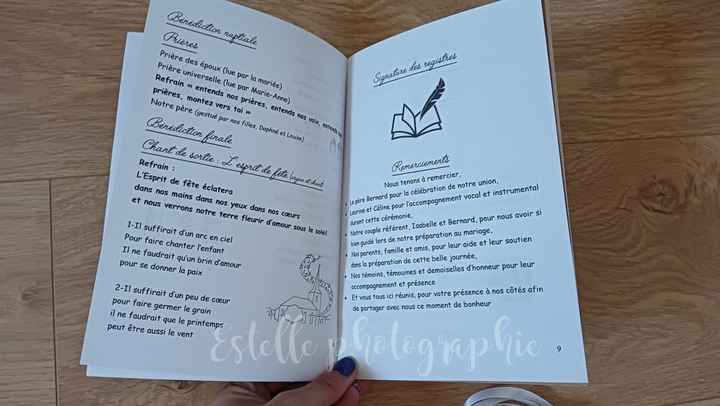 Bénédiction nuptiale
Prières
Prière des époux (lue par la mariée)
Prière universelle (lue par Marie-Anne)
Refrain « entends nos prières, entends nos voix, entends nos
prières, montez vers toi »
Notre père (gestué par nos filles, Daphné et Louise)
Bénédiction finale
Chant de sortie : L'esprit de fête (orgue et chant
Refrain :
L'Esprit de fête éclatera
dans nos mains dans nos yeux dans nos cœurs
et nous verrons notre terre fleurir d'amour sous le soleil
1-Il suffirait d'un arc en ciel
Pour faire chanter l'enfant
Il ne faudrait qu'un brin d'amour
pour se donner la paix
2-Il suffirait d'un peu de cœur
pour faire germer le grain
il ne faudrait que le printemps
peut être aussi le vent
Signature des registres
Remerciements
Nous tenons à remercier,
• Le père Bernard pour la célébration de notre union,
• Laurine et Céline pour l'accompagnement vocal et instrumental
durant cette cérémonie,
• Notre couple référent, Isabelle et Bernard, pour nous avoir si
bien guidé lors de notre préparation au mariage,
• Nos parents, famille et amis, pour leur aide et leur soutien
dans la préparation de cette belle journée,
• Nos témoins, témouines et demoiselles d'honneur pour leur
accompagnement et présence
• Et vous tous ici réunis, pour votre présence à nos côtés afin
de partager avec nous ce moment de bonheur
9
Estelle photographie